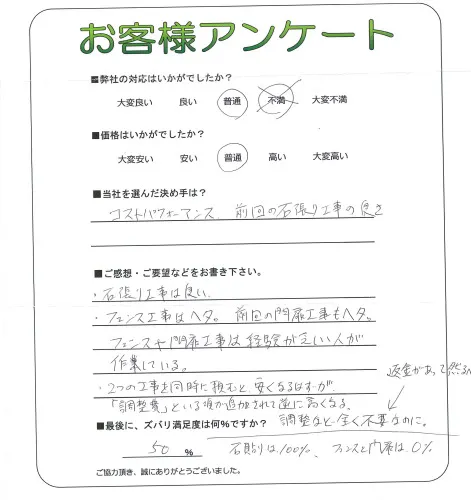 お客様アンケート
■弊社の対応はいかがでしたか？
大変良い 良い 普通 不満 大変不満
■価格はいかがでしたか？
大変安い 安い 普通 高い 大変高い
■当社を選んだ決め手は？
コストパフォーマンス、前回の石張り工事の良さ
■ご感想・ご要望などをお書き下さい。
・石張り工事は良い。
・フェンス工事はヘタ。前回の門扉工事もヘタ。
フェンスや門扉工事は経験が乏しい人が
作業している。
・2つの工事を同時に頼むと安くなるはずが、
「調整費」という項が追加されて逆に高くなる。
返金があって然るべき
調整など全く不要なのに。
■最後に、ズバリ満足度は何％ですか？
50 ％
石貼りは100%、フェンスと門扉は0%
ご協力頂き、誠にありがとうございました。